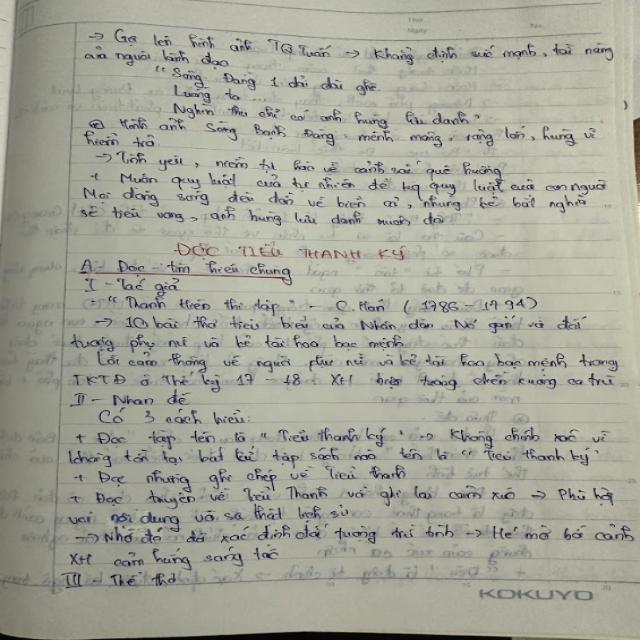 → Gợi lên hình ảnh TQTuấn → Khẳng định sức mạnh, tài năng
của người lãnh đạo
"Sông Đằng 1 dải dài ghê
Luồng to ....
Nghìn thu chỉ có anh hùng lưu danh"
Hình ảnh Sông Bạch Đằng: mênh mông, rộng lớn, hùng vĩ
hiểm trở
→ Tình yêu, niềm tự hào về cảnh sắc quê hương
+ Mượn quy luật của tự nhiên để kq quy luật của con người
Mọi dòng sông đều dồn về biển cả, những kẻ bất nghĩa
sẽ tiêu vong, anh hùng lưu danh muôn đời
ĐỌC TIỂU THANH KÝ
A. Đọc - tìm hiểu chung
I - Tác giả
- "Thanh Hiên thi tập" - C.Hán (1786 - 1794)
→ 10 bài thơ tiêu biểu của Nhân dân. Nó gắn với đối
tượng phụ nữ và kẻ tài hoa bạc mệnh
Lời cảm thông về người phụ nữ và kẻ tài hoa bạc mệnh trong
TKTĐ ở thế kỷ 17 - 18 XH
II - Nhan đề
Có 3 cách hiểu:
+ Đọc tập tên là "Tiểu thanh ký" → Không chính xác vì
không tồn tại bất kì tập sách nào tên là "Tiểu thanh ký"
+ Đọc những ghi chép về Tiểu Thanh
+ Đọc truyện về Tiểu Thanh và ghi lại cảm xúc → Phù hợp
với nội dung và sự thật lịch sử
→ Nhan đề đã xác định đối tượng trữ tình → Hé mở bối cảnh
XH cảm hứng sáng tác
III - Thể thơ
KOKUYO